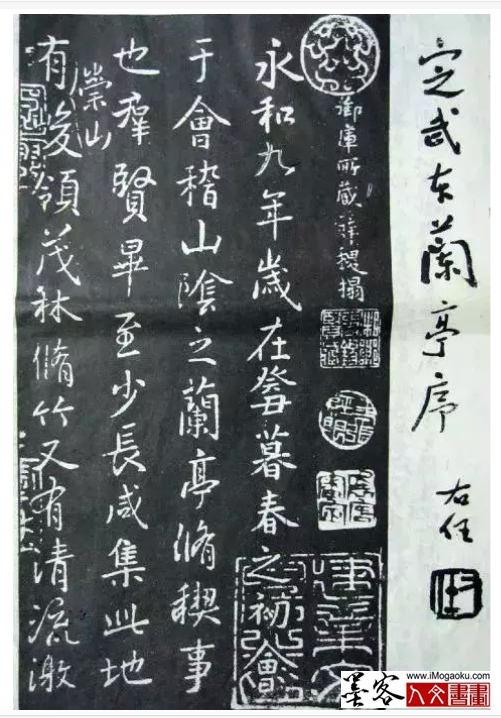 定武本蘭亭序
右任
御庫所藏薛稷搨
永和九年歲在癸丑暮春之初會
于會稽山陰之蘭亭脩稧事
也羣賢畢至少長咸集此地
崇山
有峻領茂林脩竹又有清流激
www.iMogaoku.com
墨客人文書畫